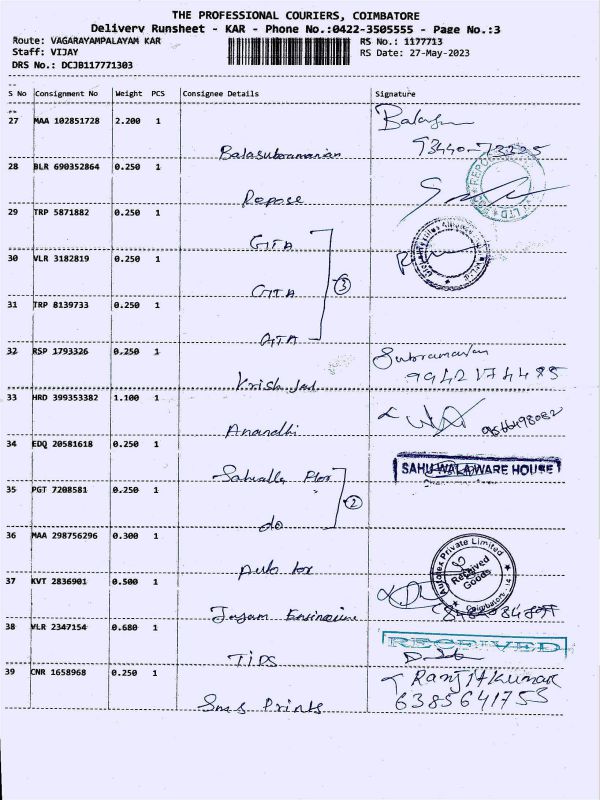 THE PROFESSIONAL COURIERS, COIMBATORE
Delivery Runsheet - KAR - Phone No.:0422-3505555 - Page No.:3
Route: VAGARAYAMPALAYAM KAR RS No.: 1177713
Staff: VIJAY RS Date: 27-May-2023
DRS No.: DCJB117771303
S No Consignment No Weight PCS Consignee Details Signature
27 MAA 102851728 2.200 1
Balasubramanian
28 BLR 690352864 0.250 1
Repose
29 TRP 5871882 0.250 1
GTA
30 VLR 3182819 0.250 1
GTA 3
31 TRP 8139733 0.250 1
GTA
32 RSP 1793326 0.250 1 Subramanian
9942174485
33 HRD 399353382 1.100 1
Anandhi 9566498082
34 EDQ 20581618 0.250 1
SAHUWALA WARE HOUSE
35 PGT 7208581 0.250 1
do 2
36 MAA 298756296 0.300 1
Autotex Private Limited
Received Goods
Coimbatore
37 KVT 2836901 0.500 1
38 VLR 2347154 0.680 1 RECEIVED
TIPS
39 CNR 1658968 0.250 1 T Ranjitkumar
Sms Prints 6385641753